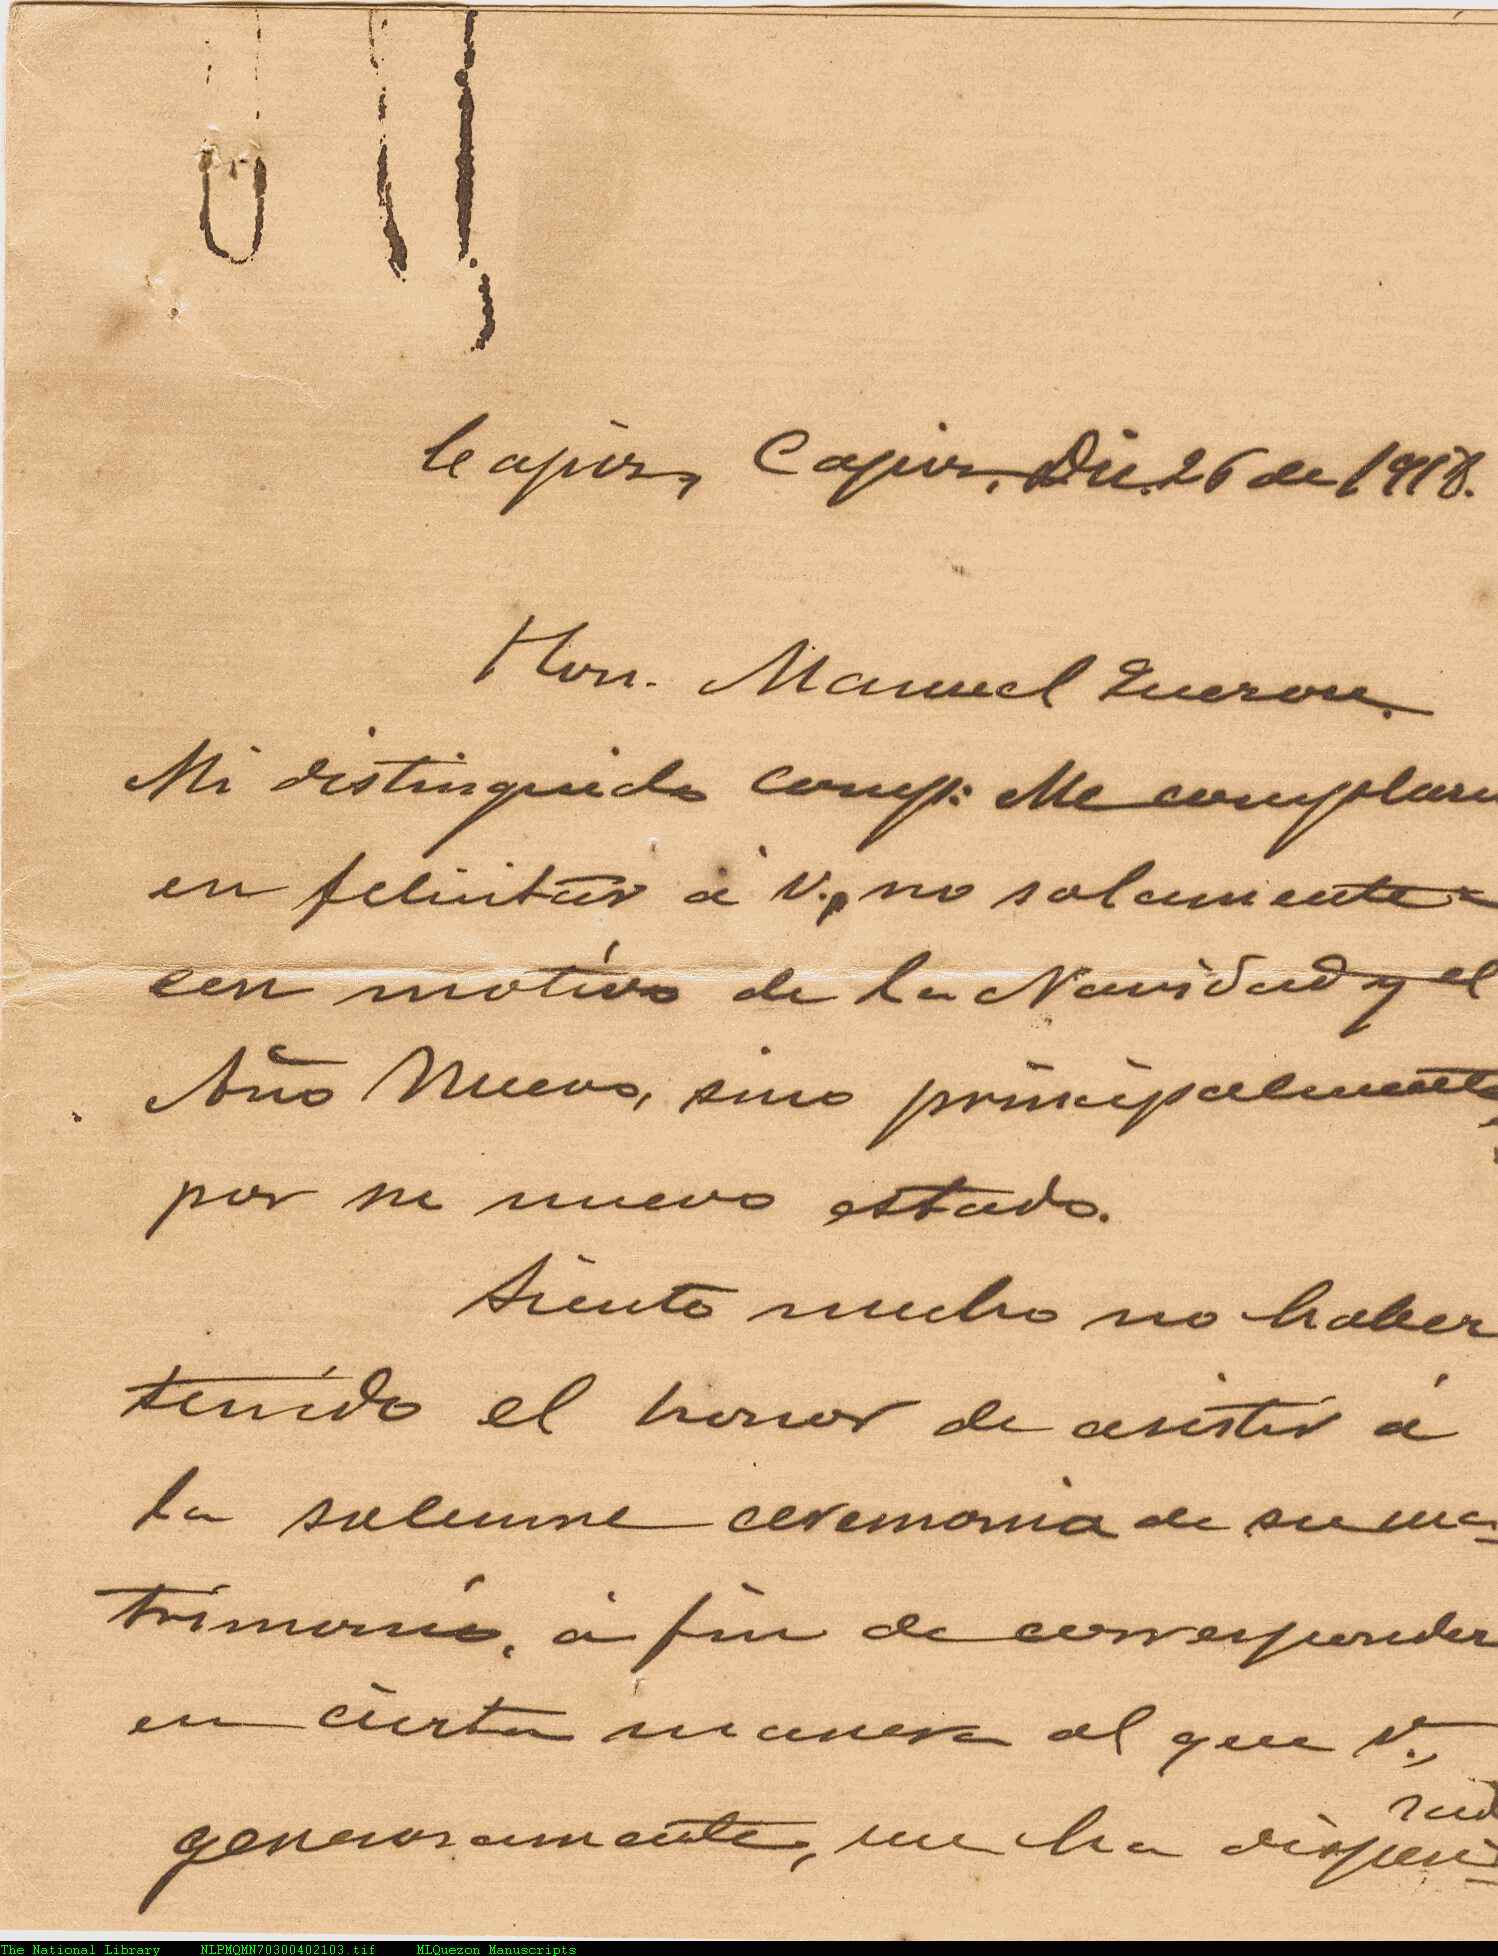 Capiz, Capiz, Dic. 26 de 1918.
Hon. Manuel Quezon.
Mi distinguido comp: Me complazc
en felicitar á V., no solamente
con motivo de la Navidad y el
Año Nuevo, sino principalmente
por su nuevo estado.
Siento mucho no haber
tenido el honor de asistir á
la solemne ceremonia de su ma-
trimonio, á fin de corresponder
en cierta manera al que V.,
generosamente, me ha dispen-
sad
The National Library NLPMQMN70300402103.tif MLQuezon Manuscripts